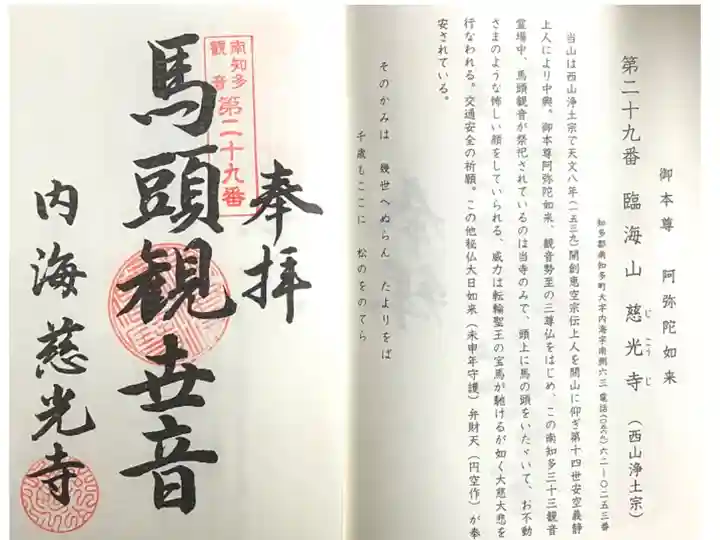 第二十九番 臨海山 慈光寺 (西山浄土宗)
じ こう じ
御本尊 阿弥陀如来
知多郡南知多町大字内海字南側六三 電話(〇五六九)六二ー〇二五三番
当山は西山浄土宗で天文八年(一五三九)開創恵空宗伝上人を開山に仰ぎ第十四世安空義静
上人により中興。御本尊阿弥陀如来、観音勢至の三尊仏をはじめ、この南知多三十三観音
霊場中、馬頭観音が祭祀されているのは当寺のみで、頭上に馬の頭をいたゞいて、お不動
さまのような怖しい顔をしていられる、威力は転輪聖王の宝馬が馳けるが如く大慈大悲を
行なわれる。交通安全の祈願。この他秘仏大日如来(未申年守護)弁財天(円空作)が奉
安されている。
そのかみは 幾世へぬらん たよりをば
千歳もここに 松のをのてら
奉拝
南知多
観音
第二十九番
馬頭観世音
内海慈光寺